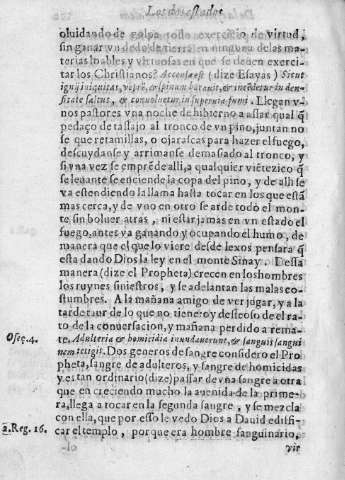 Los dos estados
oluidando de golpe todo exercicio de virtud,
sin ganar vn dedo de tierra en ninguna de las ma-
terias loables y virtuosas en que se deuen exerci-
tar los Christianos? Accensa est (dize Esayas) Sicut
ignis iniquitas, veprē, & spinam vorabit, & succēdetur in den-
sitate saltus, & conuoluetur in superbia fumi. Llegan v-
nos pastores vna noche de hibierno a assar qual q̃
pedaço de tassajo al tronco de vn pino, juntan no
se que retamillas, o ojarascas para hazer el fuego,
descuydanse y arrimanse demasiado al tronco, y
si vna vez se emprēde alli, a qualquier viētezico q̃
se leuante se enciende la copa del pino, y de alli se
va estendiendo la llama hasta tocar en los que està
mas cerca, y de vno en otro se arde todo el mon-
te sin boluer atras, ni estar jamas en vn estado el
fuego, antes va ganando y ocupando el humo, de
manera que el que lo viere desde lexos pensara q̃
esta dando Dios la ley en el monte Sinay. Dessa
manera (dize el Propheta) crecen en los hombres
los ruynes siniestros, y se adelantan las malas co-
stumbres. A la mañana amigo de ver jugar, y a la
tarde taur de lo que no tiene: y desseoso de el ra-
to de la conuersacion, y mañana perdido a rema-
Oseę. 4. te. Adulteria & homicidia inundauerunt, & sanguis sangui
nem tetigit. Dos generos de sangre considero el Pro
pheta, sangre de adulteros, y sangre de homicidas
y es tan ordinario (dize) passar de vna sangre a otra
que en creciendo mucho la auenida de la prime-
ra, llega a tocar en la segunda sangre, y se mezcla
2. Reg. 16. con ella, que por esso le vedo Dios a Dauid edifi-
car el templo, porque era hombre sanguinario,
vir